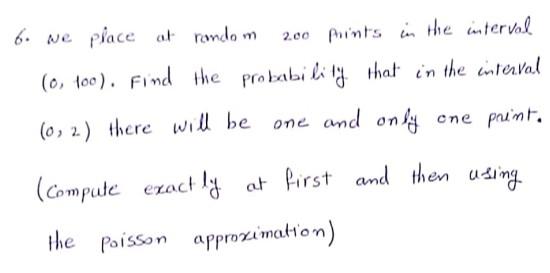 6. we place at random 200 points in the interval
(0, 100). Find the probability that in the interval
(0, 2) there will be one and only one point.
(Compute exactly at first and then using
the poisson approximation)